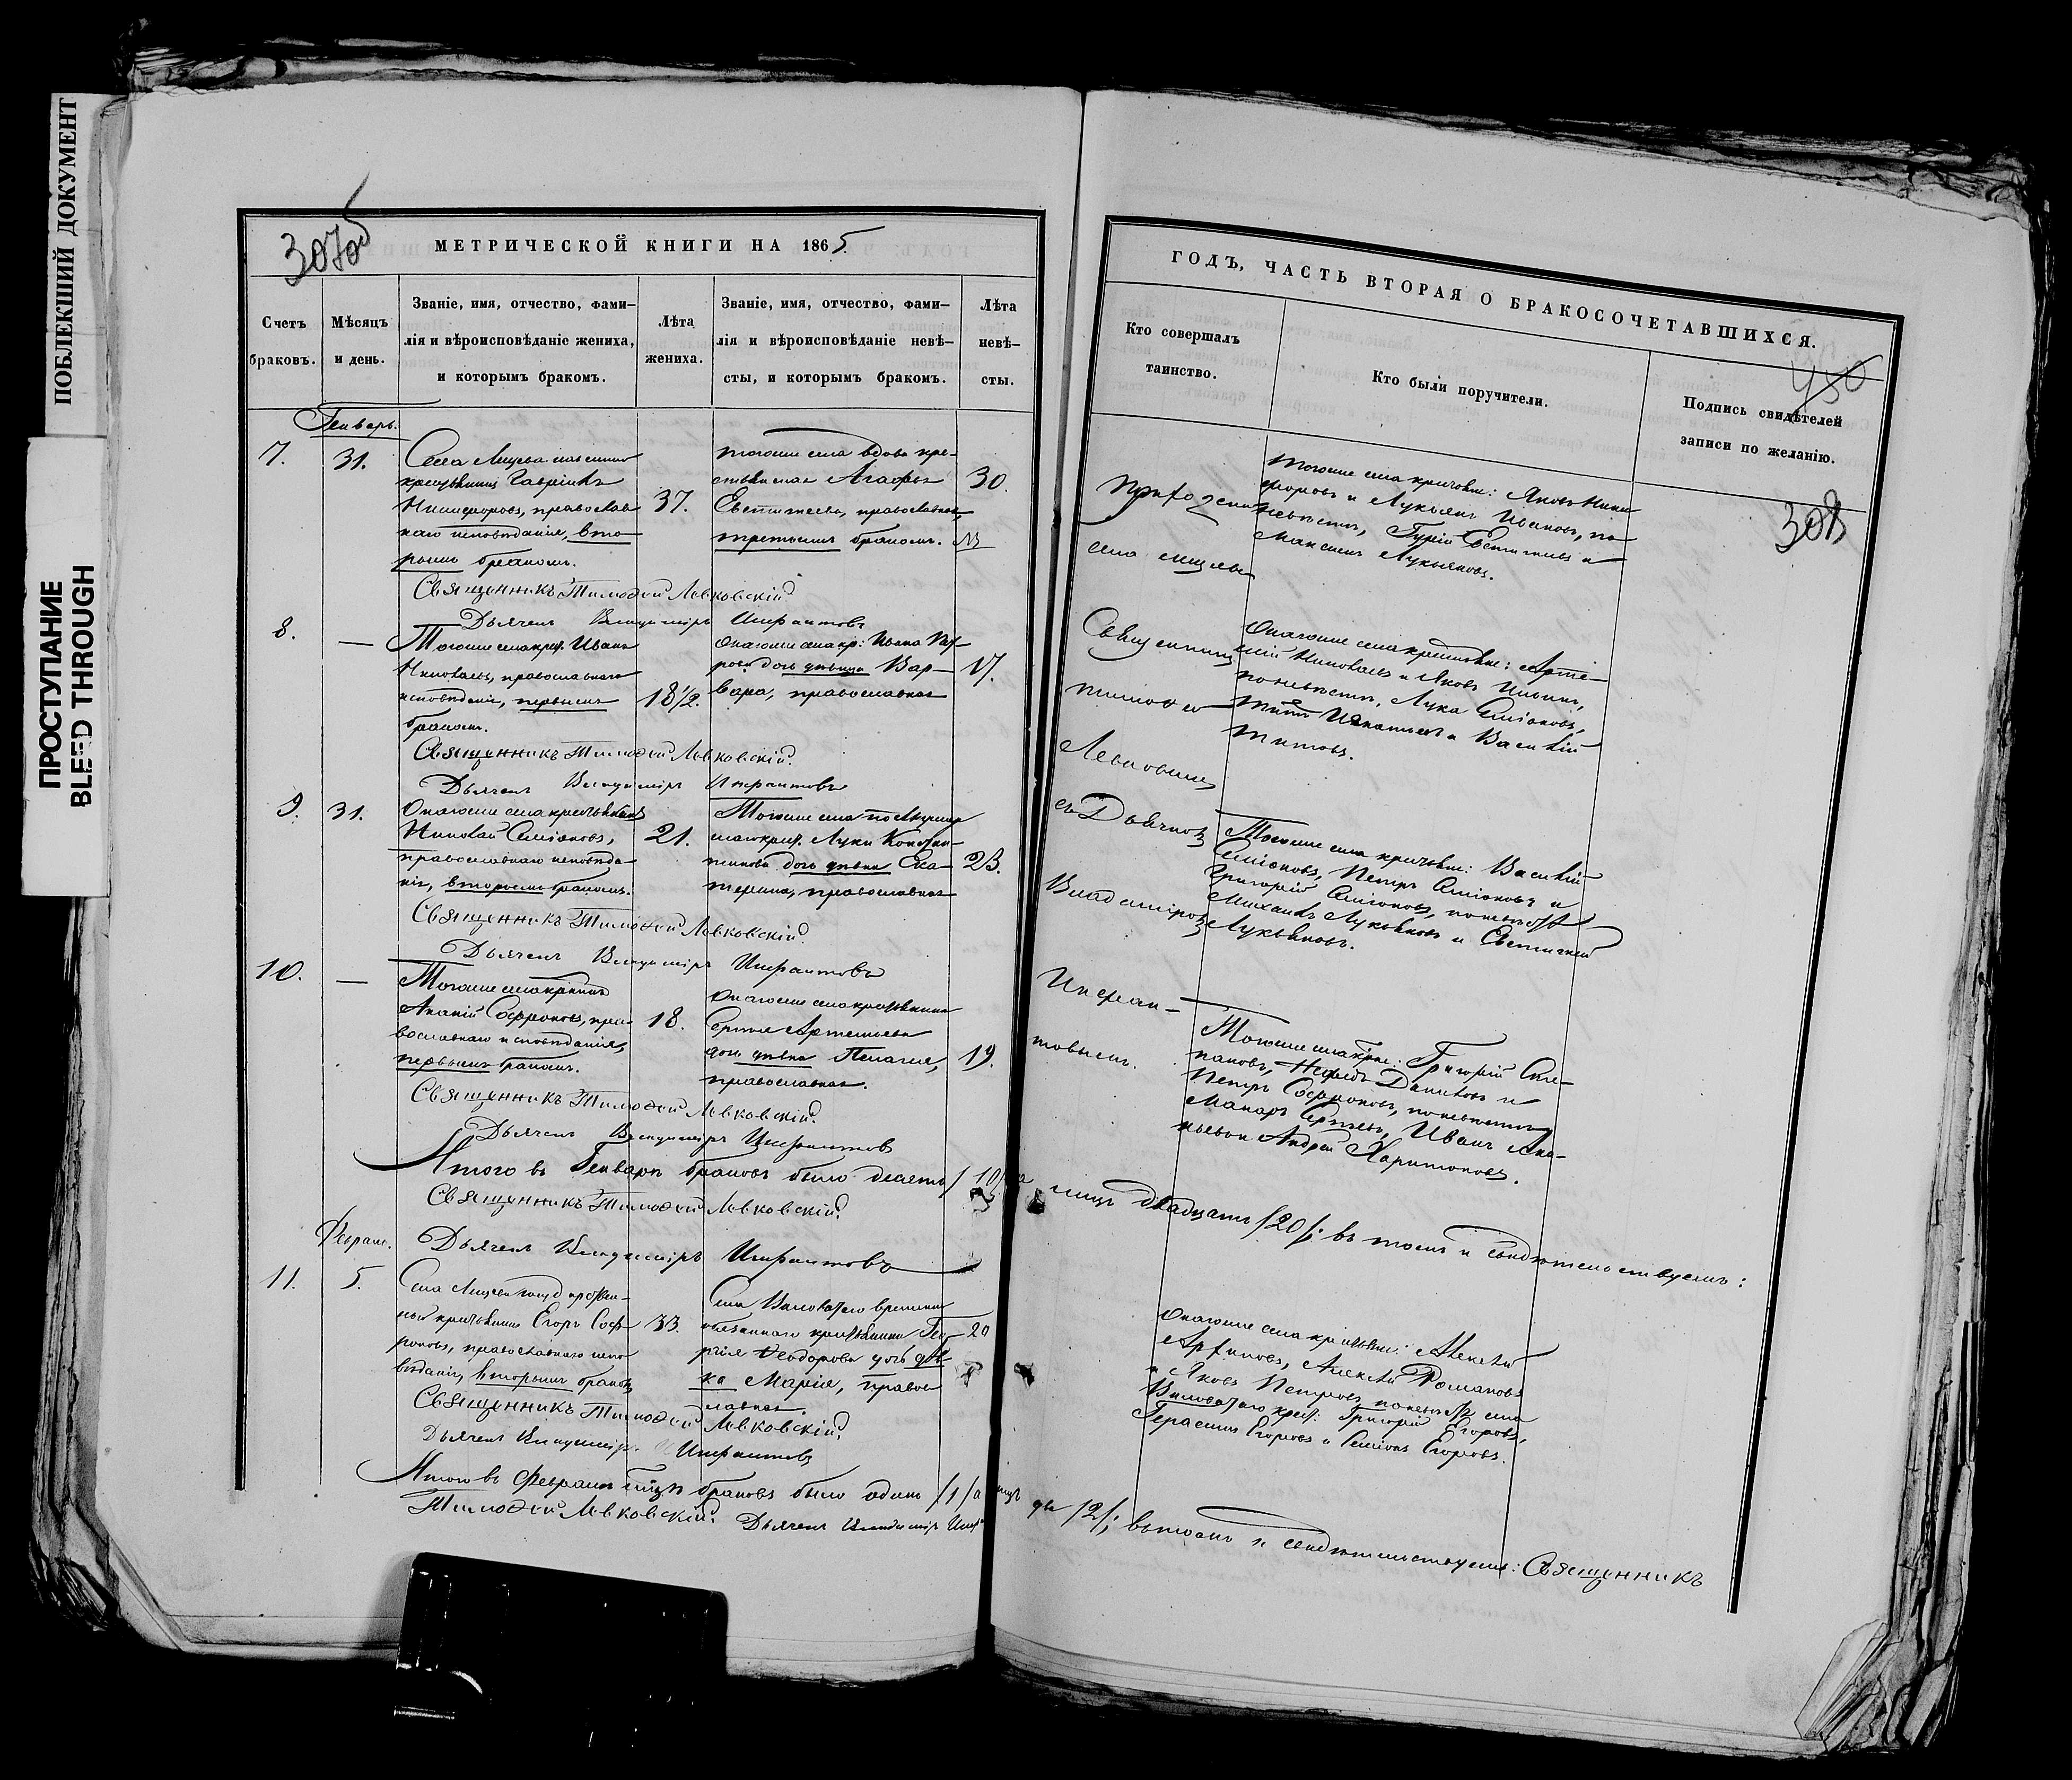 ПОБЛЕКШИЙ ДОКУМЕНТ
ПРОСТУПАНИЕ
BLEED THROUGH
307об
МЕТРИЧЕСКОЙ КНИГИ НА 1865.
Счетъ
браковъ.
Мѣсяцъ
и день.
Званіе, имя, отчество, фами-
лія и вѣроисповѣданіе жениха,
и которымъ бракомъ.
Лѣта
жениха.
Званіе, имя, отчество, фами-
лія и вѣроисповѣданіе невѣ-
сты, и которымъ бракомъ.
Лѣта
невѣ-
сты.
Генварь.
7.
31.
Гавріилъ
Никифоровъ, православ
наго исповѣданія, вто
рымъ бракомъ.
37.
тогоже села вдова кре-
Агафья
православная,
третьимъ бракомъ.
30.
Священникъ Тимофей Левковскій
Дьячекъ Владиміръ Инфантовъ
8.
—
Тогоже села крест. Иванъ
православнаго
исповѣданія, первымъ
бракомъ.
18½.
Онагоже села кр:
дочь дѣвица Вар-
вара, православная
17.
Священникъ Тимофей Левковскій.
Дьячекъ Владиміръ Инфантовъ
9.
31.
Онагоже села крестьянинъ
Николай Симіоновъ,
православнаго исповѣда-
нія, вторымъ бракомъ.
21.
Тогоже села
крест. Луки Констан-
тинова дочь дѣвка Ека-
терина, православная
23.
Священникъ Тимофей Левковскій.
Дьячекъ Владиміръ Инфантовъ
10.
—
Тогоже села
Ананій Софроновъ, пра-
вославнаго исповѣданія,
первымъ бракомъ.
18.
Онагоже села крестьянина
Сергѣя Артемьева
дочь дѣвка Пелагія,
православная.
19.
Священникъ Тимофей Левковскій.
Дьячекъ Владиміръ Инфантовъ
Итого въ Генварѣ браковъ было десять /10/ а лицъ двадцать /20/; въ томъ и свидѣтельствуемъ:
Священникъ Тимофей Левковскій.
Дьячекъ Владиміръ Инфантовъ
Февраль.
11.
5.
Егоръ Соф-
роновъ, православнаго испо
вѣданія, вторымъ бракомъ
33.
Села Виловатаго временно
обязаннаго крестьянина Геор-
гія Ѳеодорова дочь дѣв-
ка Марія, право
славная.
20
Священникъ Тимофей Левковскій.
Дьячекъ Владиміръ Инфантовъ
Итого въ Февралѣ мѣсяцѣ браковъ было одинъ /1/ а лицъ два /2/; въ томъ и свидѣтельствуемъ: Священникъ
Тимофей Левковскій. Дьячекъ Владиміръ
ГОДЪ, ЧАСТЬ ВТОРАЯ О БРАКОСОЧЕТАВШИХСЯ.
Кто совершалъ
таинство.
Кто были поручители.
Подпись свидѣтелей
записи по желанію.
450
308
села
Священникъ
Тимофей
Левковскій
съ Дьячкомъ
Владиміромъ
Инфан-
товымъ.
Тогоже села крестьяне: Яковъ Ники
форовъ и Лукьянъ Ивановъ, по
невѣстѣ, Гурій и
Максимъ Лукьяновъ.
Онагоже села крестьяне: Арте-
мій Николаевъ и Яковъ Ильинъ,
по невѣстѣ, Лука Симіоновъ,
Титъ Игнатьевъ и Василій
Титовъ.
Тогоже села крестьяне: Василій
Симіоновъ, Петръ Симіоновъ и
Григорій Симіоновъ, по невѣстѣ
Михаилъ Лукьяновъ и Евтихій
Лукьяновъ.
Тогоже села крес: Григорій Сте-
пановъ, Даниловъ и
Петръ Софроновъ, по невѣстѣ
Макаръ Сергѣевъ, Иванъ Ана-
ньевъ и Андрей Харитоновъ.
Онагоже села крестьяне: Алексѣй
Алексѣй Романовъ
и Яковъ Петровъ, по невѣстѣ села
Виловатаго крест: Григорій Егоровъ,
Герасимъ Егоровъ и Симіонъ Егоровъ.